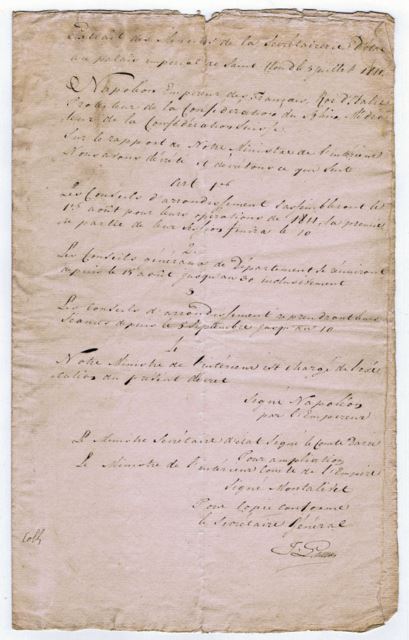 Extrait des Minutes de la Secrétairerie D'état
au palais imperial de Saint Cloud le 3 juillet 1811.
Napoléon Empereur des français, Roi d'Italie
Protecteur de la Confédération du Rhin, Média
teur de la Confédération Suisse
Sur le rapport de Notre Ministre de l'intérieur
Nous avons décrété et décrétons ce qui suit
Art 1er
Les Conseils d'arrondissement s'assembleront le
1er août pour leurs opérations de 1811, la premiè
re partie de leur session finira le 10
2
Les Conseils généraux de Département se réuniront
depuis le 15 août jusqu'au 30 inclusivement
3
Les Conseils d'arrondissement reprendront leurs
séances depuis le 5 septembre jusqu'au 10
4
Notre Ministre de l'intérieur est chargé de l'exé
cution du présent décret
Signé Napoléon
par l'Empereur
Le Ministre Secrétaire d'état Signé le Comte Daru
Pour ampliation
Le Ministre de l'intérieur Comte de l'Empire
Signé Montalivet
Pour copie conforme
le Secrétaire Général